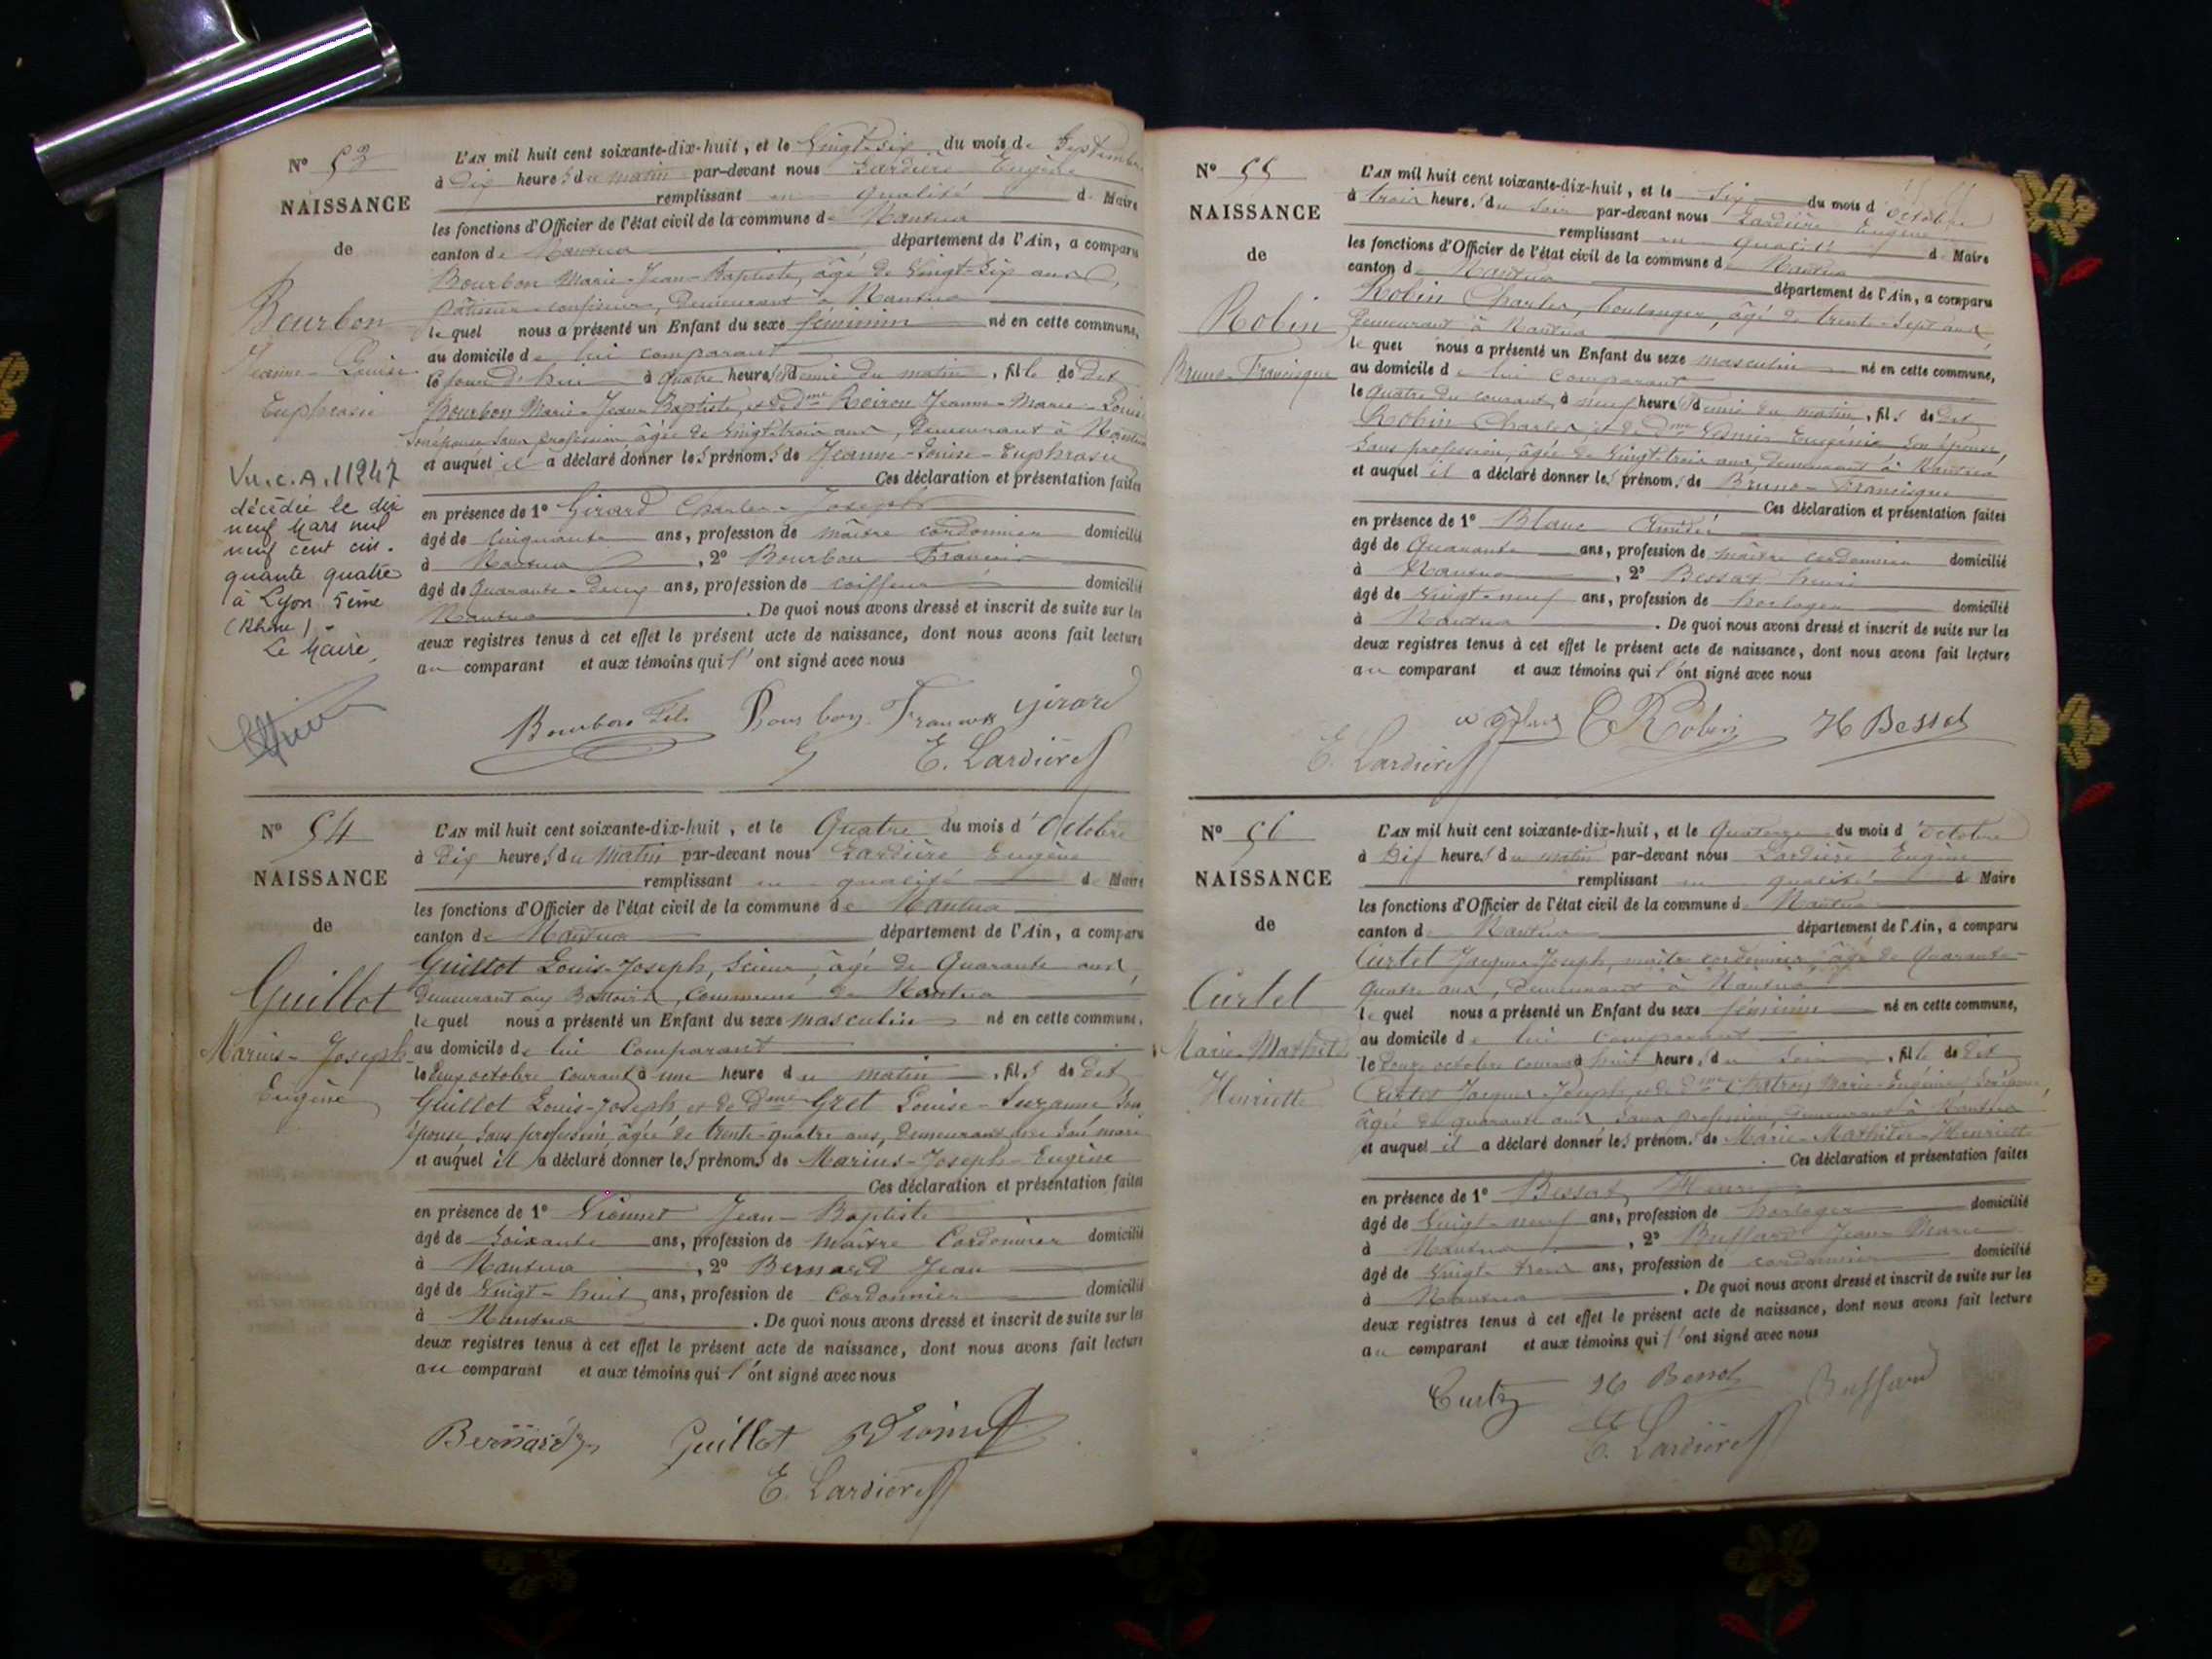 N° 53
NAISSANCE
de
Bourbon
Jeanne-Louise
Euphrasie
Vu.c.A.11247
décédée le dix
neuf Mars mil
neuf cent cin-
quante quatre
à Lyon 5ème
(Rhône).
Le Maire,
L'AN mil huit cent soixante-dix-huit, et le Vingt-six du mois de Septembre
à Dix heures du matin par-devant nous Lardière Eugène
remplissant en qualité de Maire
les fonctions d'Officier de l'état civil de la commune de Nantua
canton de Nantua département de l'Ain, a comparu
Bourbon Marie-Jean-Baptiste, âgé de Vingt-six ans,
pâtissier-confiseur, demeurant à Nantua
lequel nous a présenté un Enfant du sexe féminin né en cette commune,
au domicile de lui comparant
le jour d'hui à quatre heures & demie du matin, fille de dit
Bourbon Marie-Jean-Baptiste, et de Dme Jeanne-Marie-Louise
Son épouse sans profession âgée de Vingt-trois ans, demeurant à Nantua
et auquel il a déclaré donner les prénoms de Jeanne-Louise-Euphrasie
Ces déclaration et présentation faites
en présence de 1° Girard Charles-Joseph
âgé de Cinquante ans, profession de maître cordonnier domicilié
à Nantua, 2° Bourbon Francis
âgé de Quarante-deux ans, profession de coiffeur domicilié
Nantua. De quoi nous avons dressé et inscrit de suite sur les
deux registres tenus à cet effet le présent acte de naissance, dont nous avons fait lecture
au comparant et aux témoins qui l'ont signé avec nous
Bourbon Fils Bourbon Francis Girard
E. Lardière
N° 54
NAISSANCE
de
Guillot
Marius-Joseph-
Eugène
L'AN mil huit cent soixante-dix-huit, et le Quatre du mois d'Octobre
à Dix heures du Matin par-devant nous Lardière Eugène
remplissant en qualité de Maire
les fonctions d'Officier de l'état civil de la commune de Nantua
canton de Nantua département de l'Ain, a comparu
Guillot Louis-Joseph, Scieur, âgé de Quarante ans,
demeurant aux Battoirs, Commune de Nantua
lequel nous a présenté un Enfant du sexe masculin né en cette commune,
au domicile de lui Comparant
le Deux octobre courant à une heure du matin, fils de dit
Guillot Louis-Joseph, et de Dme Gret Louise-Suzanne Son
épouse sans profession, âgée de trente-quatre ans, demeurant avec son mari
et auquel il a déclaré donner les prénoms de Marius-Joseph-Eugène
Ces déclaration et présentation faites
en présence de 1° Vionnet Jean-Baptiste
âgé de Soixante ans, profession de Maître Cordonnier domicilié
à Nantua, 2° Bernard Jean
âgé de Vingt-huit ans, profession de Cordonnier domicilié
à Nantua. De quoi nous avons dressé et inscrit de suite sur les
deux registres tenus à cet effet le présent acte de naissance, dont nous avons fait lecture
au comparant et aux témoins qui l'ont signé avec nous
Bernard Guillot Vionnet
E. Lardière
N° 55
NAISSANCE
de
Robin
Bruno-Francisque
L'AN mil huit cent soixante-dix-huit, et le Six du mois d'octobre
à trois heures du soir par-devant nous Lardière Eugène
remplissant en qualité de Maire
les fonctions d'Officier de l'état civil de la commune de Nantua
canton de Nantua département de l'Ain, a comparu
Robin Charles, boulanger, âgé de trente-sept ans,
demeurant à Nantua
lequel nous a présenté un Enfant du sexe masculin né en cette commune,
au domicile de lui comparant
le quatre du courant, à neuf heures & demie du matin, fils de dit
Robin Charles, et de Dme Eugénie Son épouse,
sans profession, âgée de Vingt-trois ans, demeurant à Nantua
et auquel il a déclaré donner les prénoms de Bruno-Francisque
Ces déclaration et présentation faites
en présence de 1° Blanc Aimé
âgé de Quarante ans, profession de maître cordonnier domicilié
à Nantua, 2° Bessat henri
âgé de Vingt-neuf ans, profession de horloger domicilié
à Nantua. De quoi nous avons dressé et inscrit de suite sur les
deux registres tenus à cet effet le présent acte de naissance, dont nous avons fait lecture
au comparant et aux témoins qui l'ont signé avec nous
C Robin H Bessat
E. Lardière
N° 56
NAISSANCE
de
Curtet
Marie-Mathilde
Henriette
L'AN mil huit cent soixante-dix-huit, et le Quatorze du mois d'octobre
à Dix heures du matin par-devant nous Lardière Eugène
remplissant en qualité de Maire
les fonctions d'Officier de l'état civil de la commune de Nantua
canton de Nantua département de l'Ain, a comparu
Curtet Jacques-Joseph, maître cordonnier, âgé de Quarante-
quatre ans, demeurant à Nantua
lequel nous a présenté un Enfant du sexe féminin né en cette commune,
au domicile de lui comparant
le Douze octobre courant à huit heures du soir, fille de dit
Curtet Jacques-Joseph, et de Dme Marie-Eugénie Son épouse,
âgée de quarante ans sans profession, demeurant à Nantua
et auquel il a déclaré donner les prénoms de Marie-Mathilde-Henriette
Ces déclaration et présentation faites
en présence de 1° Bessat, Henri
âgé de Vingt-neuf ans, profession de horloger domicilié
à Nantua, 2° Buffard Jean Marie
âgé de Vingt trois ans, profession de cordonnier domicilié
à Nantua. De quoi nous avons dressé et inscrit de suite sur les
deux registres tenus à cet effet le présent acte de naissance, dont nous avons fait lecture
au comparant et aux témoins qui l'ont signé avec nous
Curtet H Bessat Buffard
E. Lardière